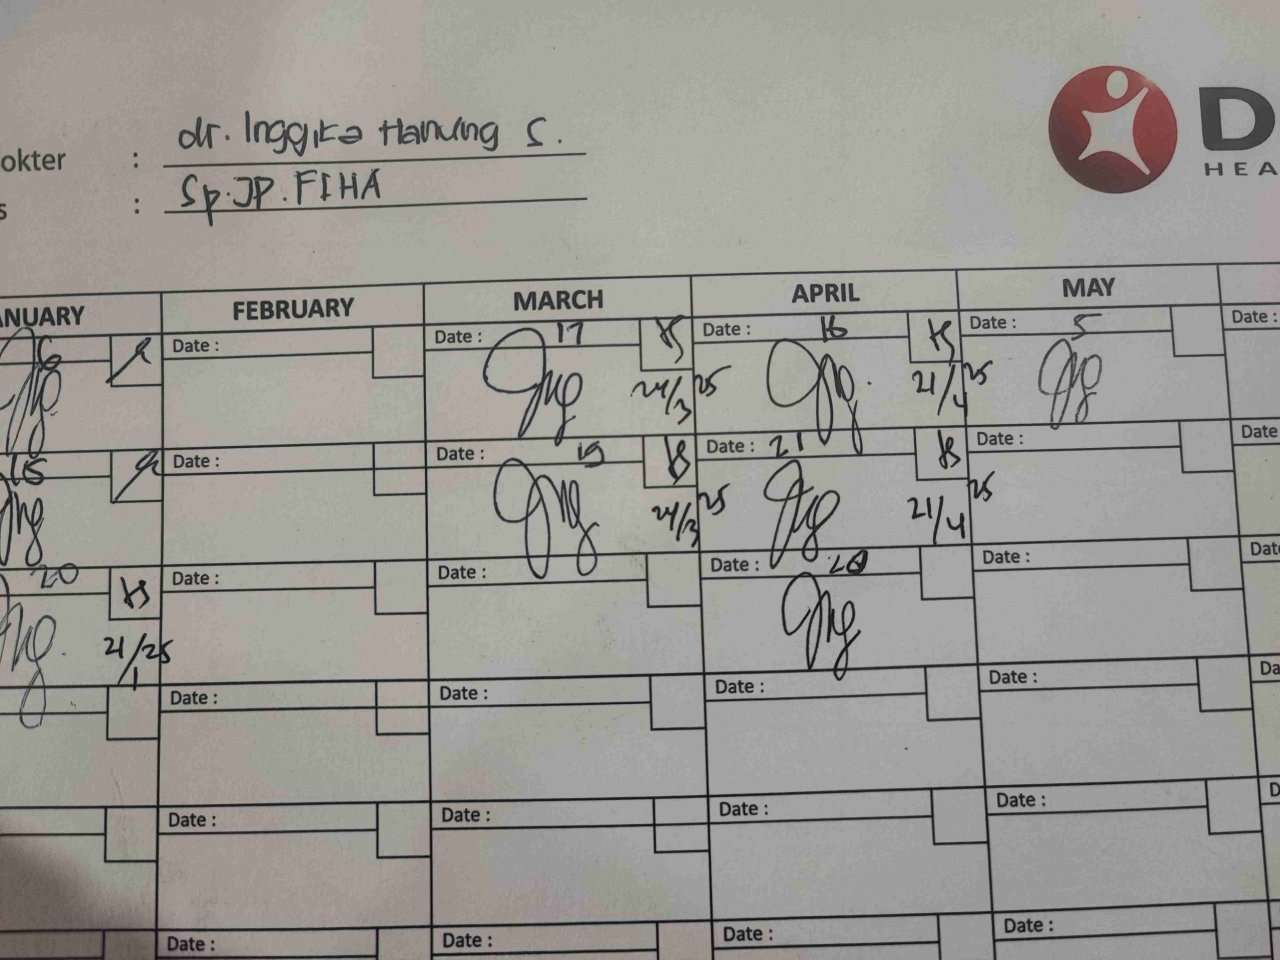 D
HEA
okter : dr. Inggita Hanung S.
s : Sp.JP.FIHA
ANUARY FEBRUARY MARCH APRIL MAY
6 Date : Date : 17 Date : 16 Date : 5 Date :
24/3 25 21/4 25
15 Date : Date : 19 Date : 21 Date : Date
24/3 25 21/4 25
20 Date : Date : Date : Date : Dat
21/1 25
Date : Date : Date : Date : Da
Date : Date : Date : Date : D
Date : Date : Date : Date :